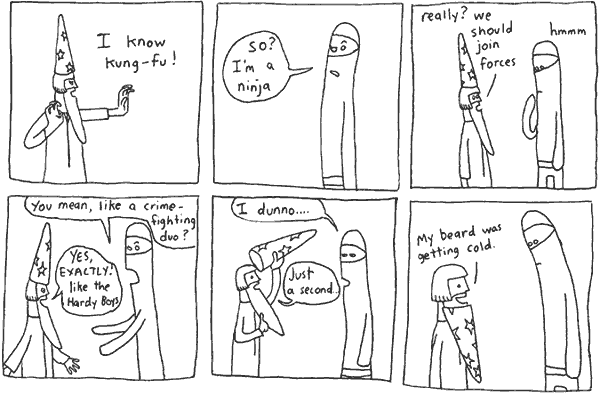 I know
kung-fu!
So?
I'm a
ninja
really? we
should
join
forces
hmmm
You mean, like a crime-
fighting
duo?
YES,
EXACTLY!
like the
Hardy Boys
I dunno....
Just
a second.
My beard was
getting cold.